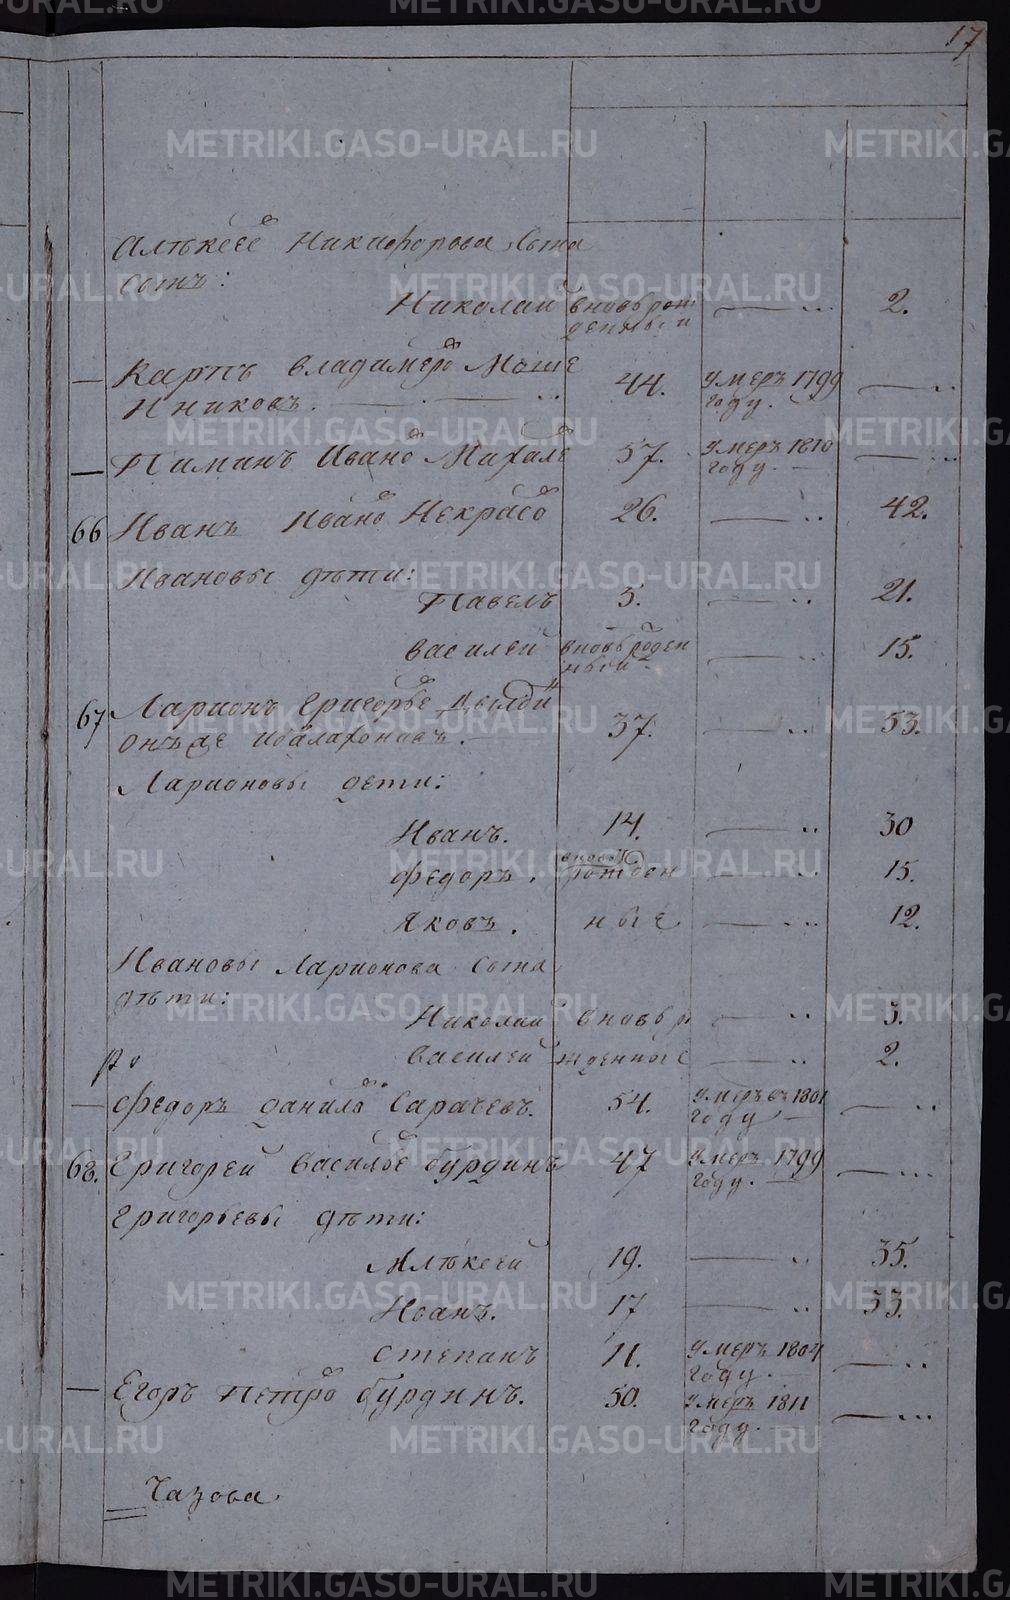 17
Алѣксѣе Никифорова Сына
сынъ:
Николай вновь рож 2.
денный
— Карпъ владимеро Моше 44. умеръ 1799
нниковъ. году.
— Пиминъ Ивано Михале 57. умеръ 1810
году.
66 Иванъ Ивано Некрасо 26. 42.
Ивановы дѣти:
Павелъ 5. 21.
василей вновь роден 15.
ный
67 Ларионъ григорье 37. 53.
онъ де
Ларионовы дети:
Иванъ. 14. 30
федоръ. вновь рожден 15.
Яковъ. ные 12.
Ивановы Ларионова сына
дѣти:
Николай вновь р 5.
василей жденные 2.
— федоръ данило Сарачевъ. 54. умеръ въ 1801
году
68. григорей василье бурдинъ 47 умеръ 1799
году.
григорьевы дѣти:
Алѣксей 19. 35.
Иванъ. 17 33.
степанъ 11. умеръ 1804
году.
— Егоръ петро бурдинъ. 50. умеръ 1811
году.
Чазова
METRIKI.GASO-URAL.RU